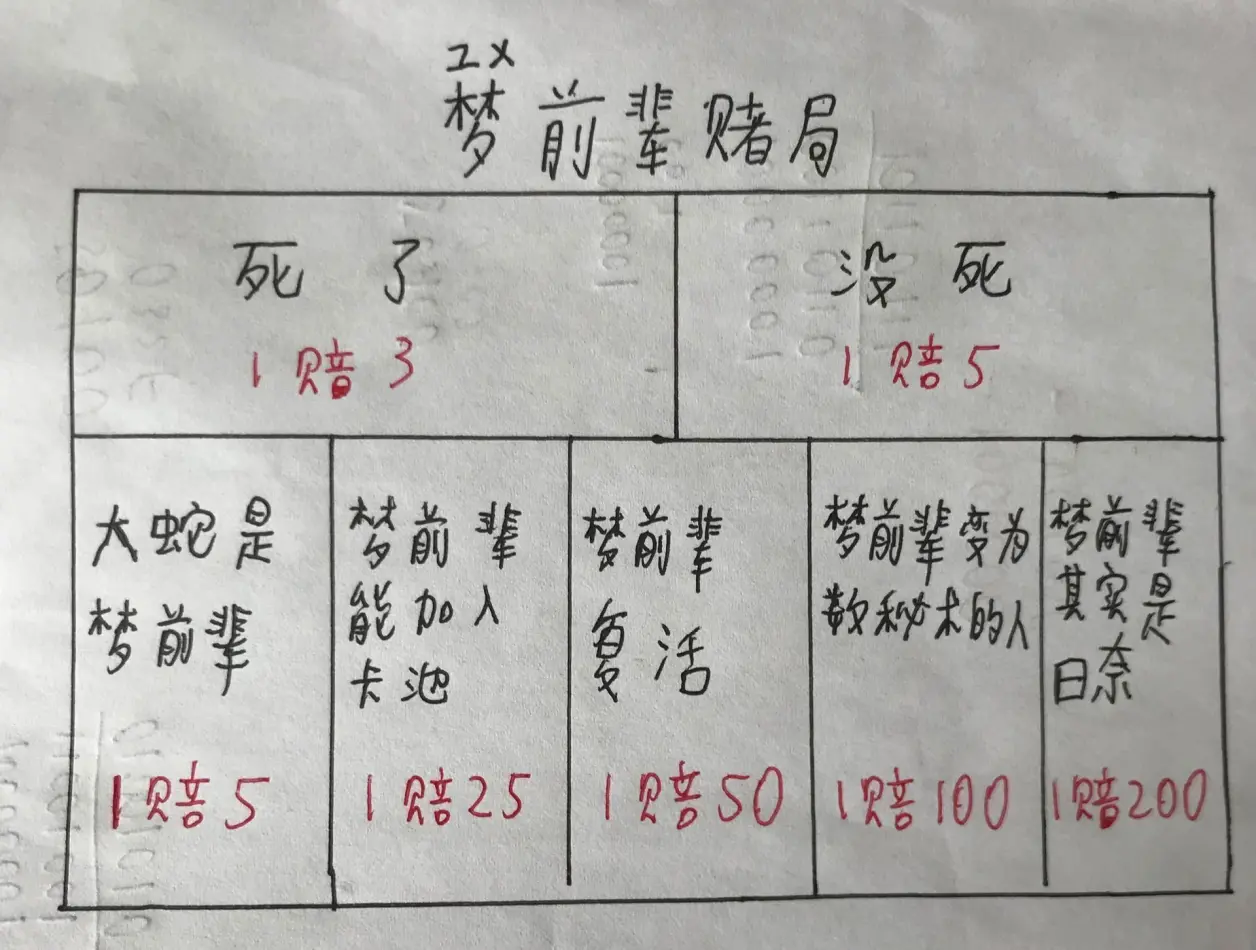 ユメ
梦前辈赌局
死了
1赔3
没死
1赔5
大蛇是
梦前辈
1赔5
梦前辈
能加入
卡池
1赔25
梦前辈
复活
1赔50
梦前辈变为
数秘术的人
1赔100
梦前辈
其实是
日奈
1赔200